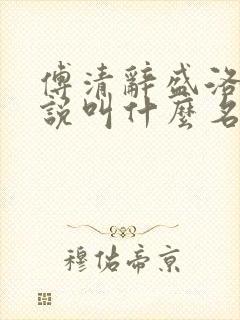 傅清辭盛洛
說叫什麼名
穆佑帝京